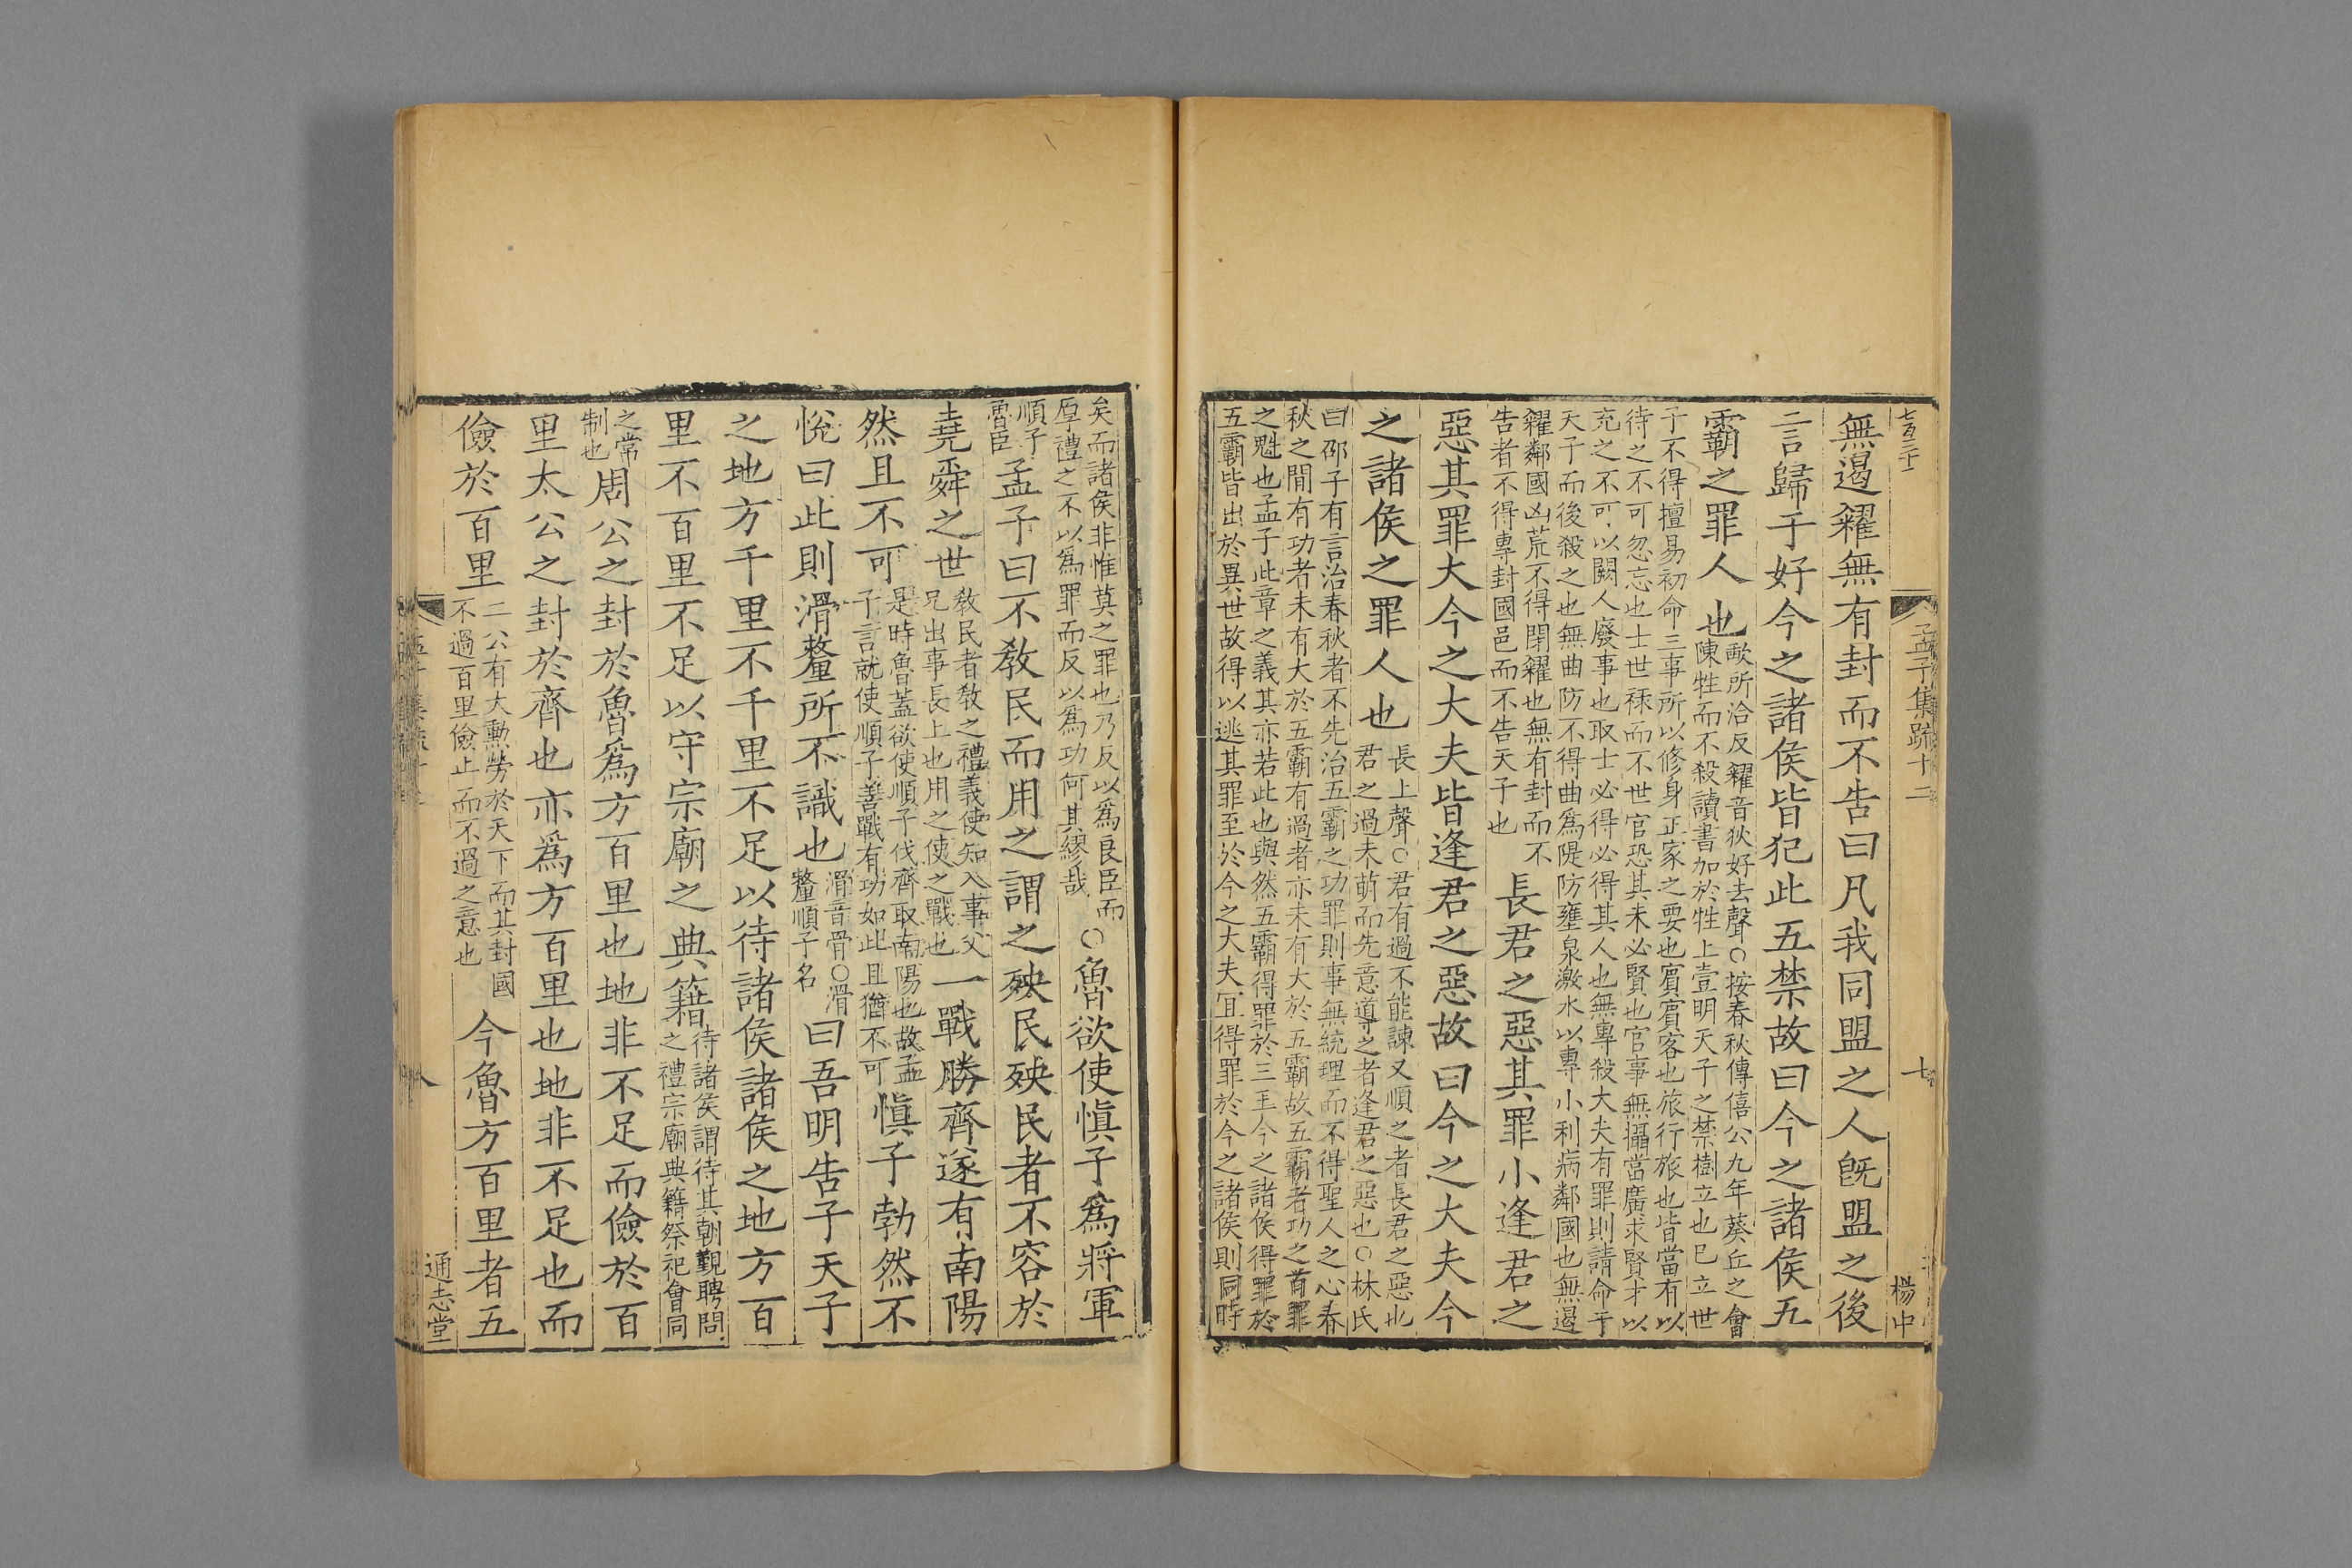 七百三十
孟子集疏十二
七
楊中
無遏糴無有封而不告曰凡我同盟之人旣盟之後
言歸于好今之諸侯皆犯此五禁故曰今之諸侯五
霸之罪人也
歃所洽反糴音狄好去聲○按春秋傳僖公九年葵丘之會
陳牲而不殺讀書加於牲上壹明天子之禁樹立也已立世
子不得擅易初命三事所以修身正家之要也賓賓客也旅行旅也皆當有以
待之不可忽忘也士世祿而不世官恐其未必賢也官事無攝當廣求賢才以
充之不可以闕人廢事也取士必得必得其人也無專殺大夫有罪則請命于
天子而後殺之也無曲防不得曲爲隄防壅泉激水以專小利病鄰國也無遏
糴鄰國凶荒不得閉糴也無有封而不
告者不得專封國邑而不告天子也
長君之惡其罪小逢君之
惡其罪大今之大夫皆逢君之惡故曰今之大夫今
之諸侯之罪人也
長上聲○君有過不能諫又順之者長君之惡也
君之過未萌而先意導之者逢君之惡也○林氏
曰邵子有言治春秋者不先治五霸之功罪則事無統理而不得聖人之心春
秋之間有功者未有大於五霸有過者亦未有大於五霸故五霸者功之首罪
之魁也孟子此章之義其亦若此也與然五霸得罪於三王今之諸侯得罪於
五霸皆出於異世故得以逃其罪至於今之大夫宜得罪於今之諸侯則同時
矣而諸侯非惟莫之罪也乃反以爲良臣而
厚禮之不以爲罪而反以爲功何其繆哉
○魯欲使愼子爲將軍
順子
魯臣
孟子曰不敎民而用之謂之殃民殃民者不容於
堯舜之世
敎民者敎之禮義使知入事父
兄出事長上也用之使之戰也
一戰勝齊遂有南陽
然且不可
是時魯蓋欲使順子伐齊取南陽也故孟
子言就使順子善戰有功如此且猶不可
愼子勃然不
悅曰此則滑釐所不識也
滑音骨○滑
釐順子名
曰吾明告子天子
之地方千里不千里不足以待諸侯諸侯之地方百
里不百里不足以守宗廟之典籍
待諸侯謂待其朝覲聘問
之禮宗廟典籍祭祀會同
之常
制也
周公之封於魯爲方百里也地非不足而儉於百
里太公之封於齊也亦爲方百里也地非不足也而
儉於百里
二公有大勳勞於天下而其封國
不過百里儉止而不過之意也
今魯方百里者五
八
通志堂